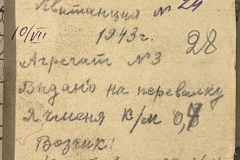 Квитанция № 24
10/VII 1943г. 28
Агрегат № 3
Выдано на перевалку
Ячменя В/М 0,4
Возчик: